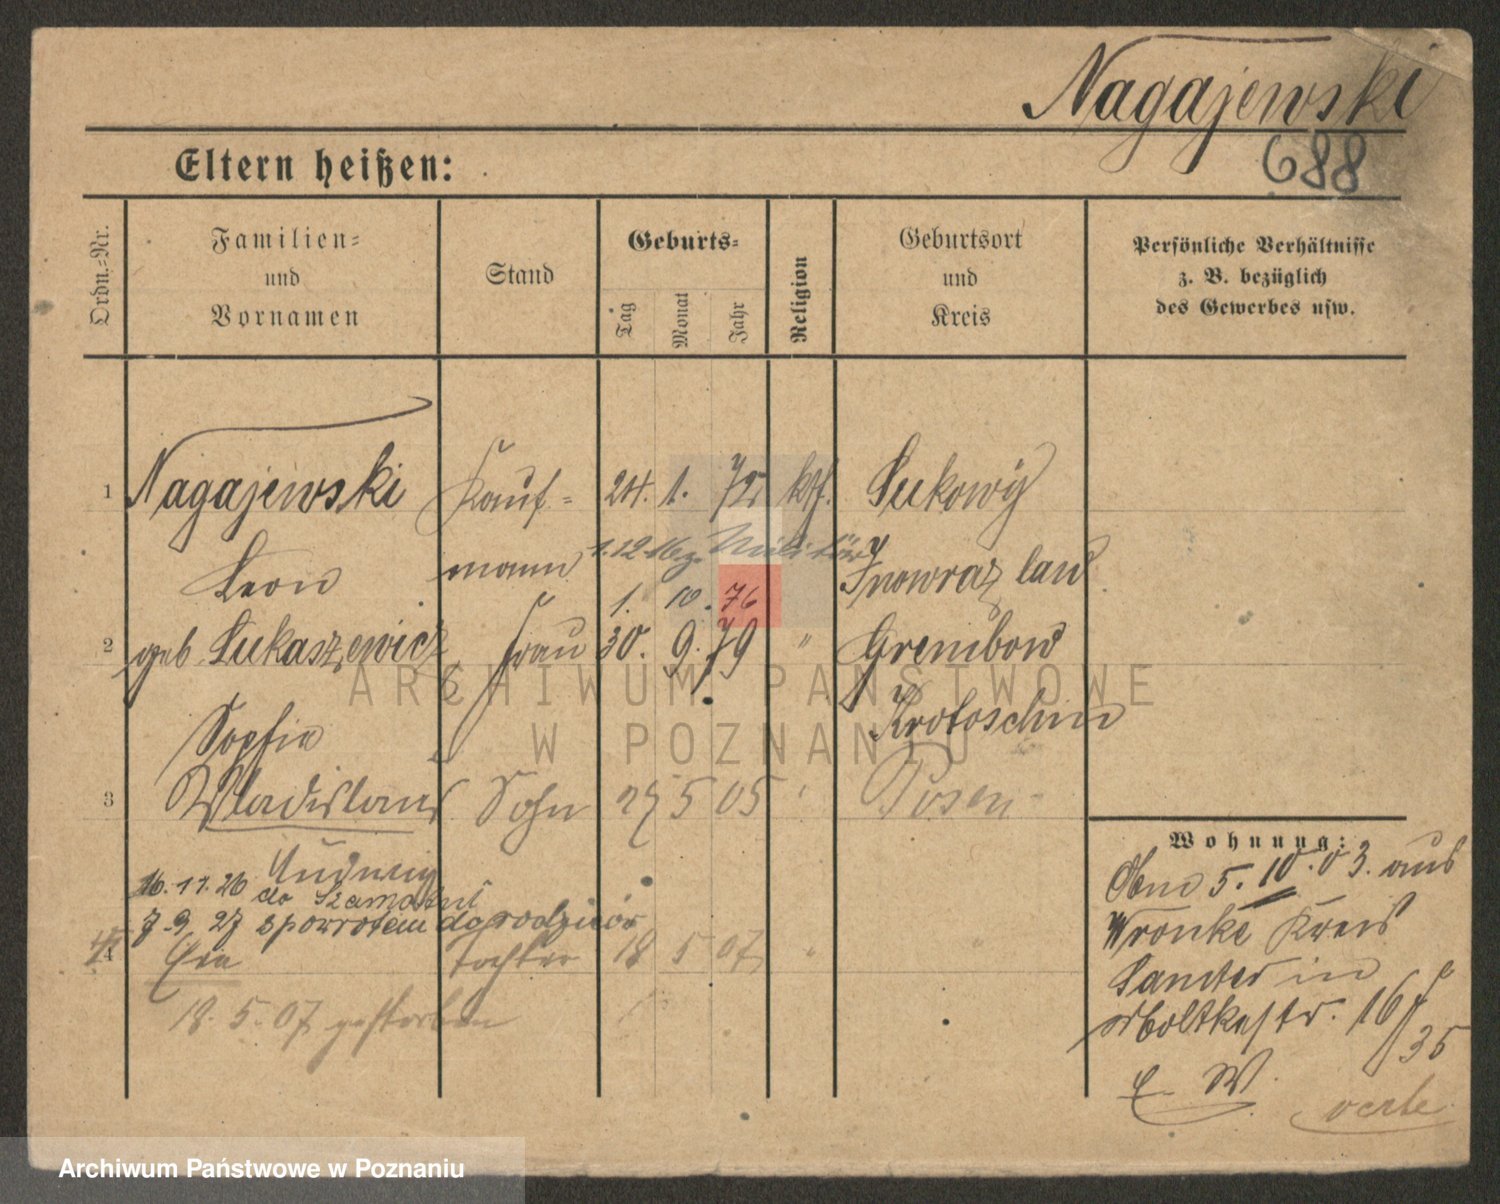 Nagajewski
688
Eltern heißen:
Ordn.=Nr.
Familien=
und
Vornamen
Stand
Geburts=
Tag
Monat
Jahr
Religion
Geburtsort
und
Kreis
Persönliche Verhältnisse
z. B. bezüglich
des Gewerbes usw.
1 Nagajewski Kauf= 24. 1. kth.
Leon mann Inowrazlaw
1. 10. 76
2 geb. Lukaszewicz Frau 30. 9. 79 "
Sopfia Krotoschin
3 Wladislaus Sohn 5 05 Posen
Ludwig
16. 11. 26 do Szamotuł
7. 9. 27 spowrotem do rodziców
4 Tochter 18 5 07 "
18. 5. 07 gestorben
Wohnung:
5. 10. 03. aus
Wronke Kreis
Samter in
Moltkestr. 16
35
ARCHIWUM PAŃSTWOWE
W POZNANIU
Archiwum Państwowe w Poznaniu